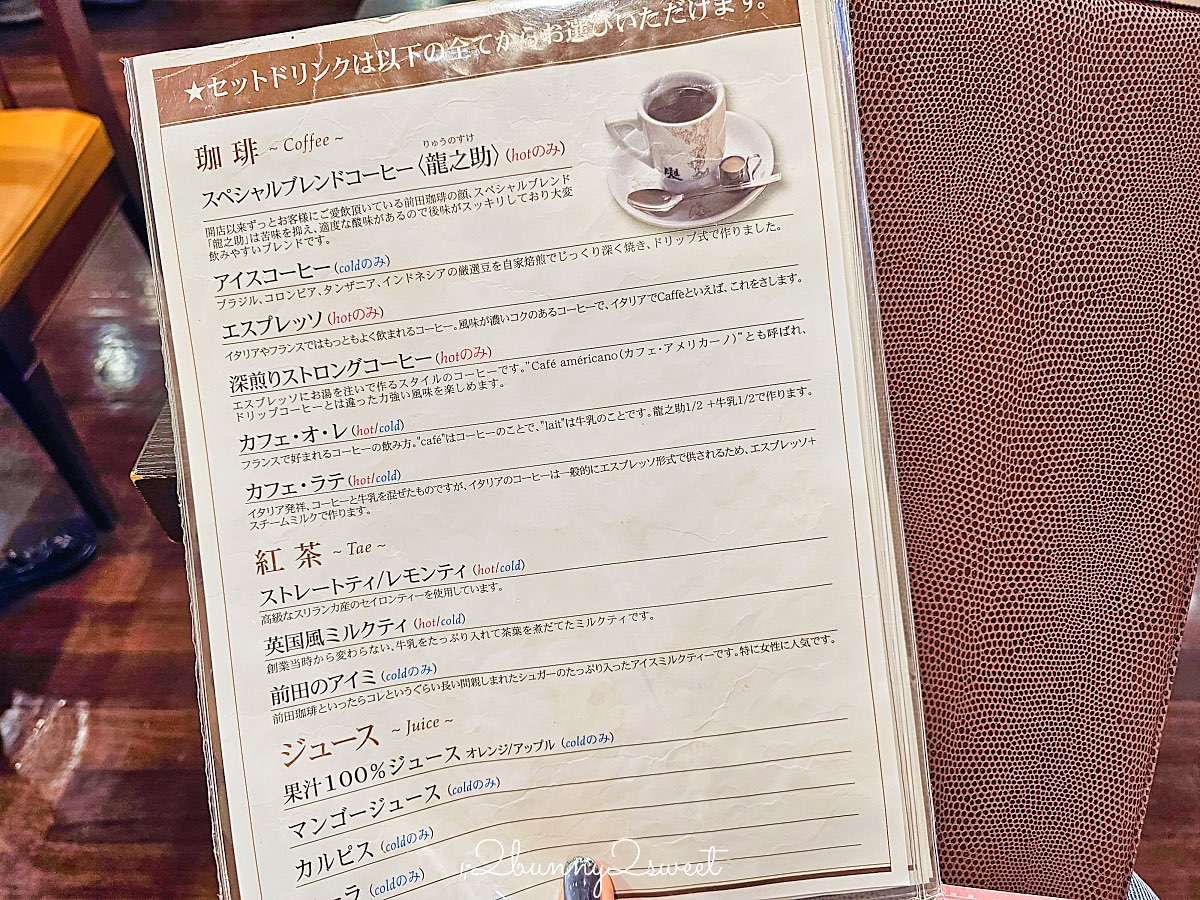 ★セットドリンクは以下の全てからお選びいただけます。
珈琲 ~ Coffee ~
りゅうのすけ
スペシャルブレンドコーヒー〈龍之助〉(hotのみ)
開店以来ずっとお客様にご愛飲頂いている前田珈琲の顔、スペシャルブレンド
「龍之助」は苦味を抑え、適度な酸味があるので後味がスッキリしており大変
飲みやすいブレンドです。
アイスコーヒー(coldのみ)
ブラジル、コロンビア、タンザニア、インドネシアの厳選豆を自家焙煎でじっくり深く焼き、ドリップ式で作りました。
エスプレッソ(hotのみ)
イタリアやフランスではもっともよく飲まれるコーヒー。風味が濃いコクのあるコーヒーで、イタリアでCaffèといえば、これをさします。
深煎りストロングコーヒー(hotのみ)
エスプレッソにお湯を注いで作るスタイルのコーヒーです。"Café américano(カフェ・アメリカーノ)"とも呼ばれ、
ドリップコーヒーとは違った力強い風味を楽しめます。
カフェ・オ・レ(hot/cold)
フランスで好まれるコーヒーの飲み方。"café"はコーヒーのことで、"lait"は牛乳のことです。龍之助1/2 +牛乳1/2で作ります。
カフェ・ラテ(hot/cold)
イタリア発祥、コーヒーと牛乳を混ぜたものですが、イタリアのコーヒーは一般的にエスプレッソ形式で供されるため、エスプレッソ+
スチームミルクで作ります。
紅茶 ~ Tae ~
ストレートティ/レモンティ(hot/cold)
高級なスリランカ産のセイロンティーを使用しています。
英国風ミルクティ(hot/cold)
創業当時から変わらない、牛乳をたっぷり入れて茶葉を煮だてたミルクティです。
前田のアイミ(coldのみ)
前田珈琲といったらコレというぐらい長い間親しまれたシュガーのたっぷり入ったアイスミルクティーです。特に女性に人気です。
ジュース ~ Juice ~
果汁100%ジュース オレンジ/アップル (coldのみ)
マンゴージュース(coldのみ)
カルピス(coldのみ)
ーラ(coldのみ)
r2bunny2sweet